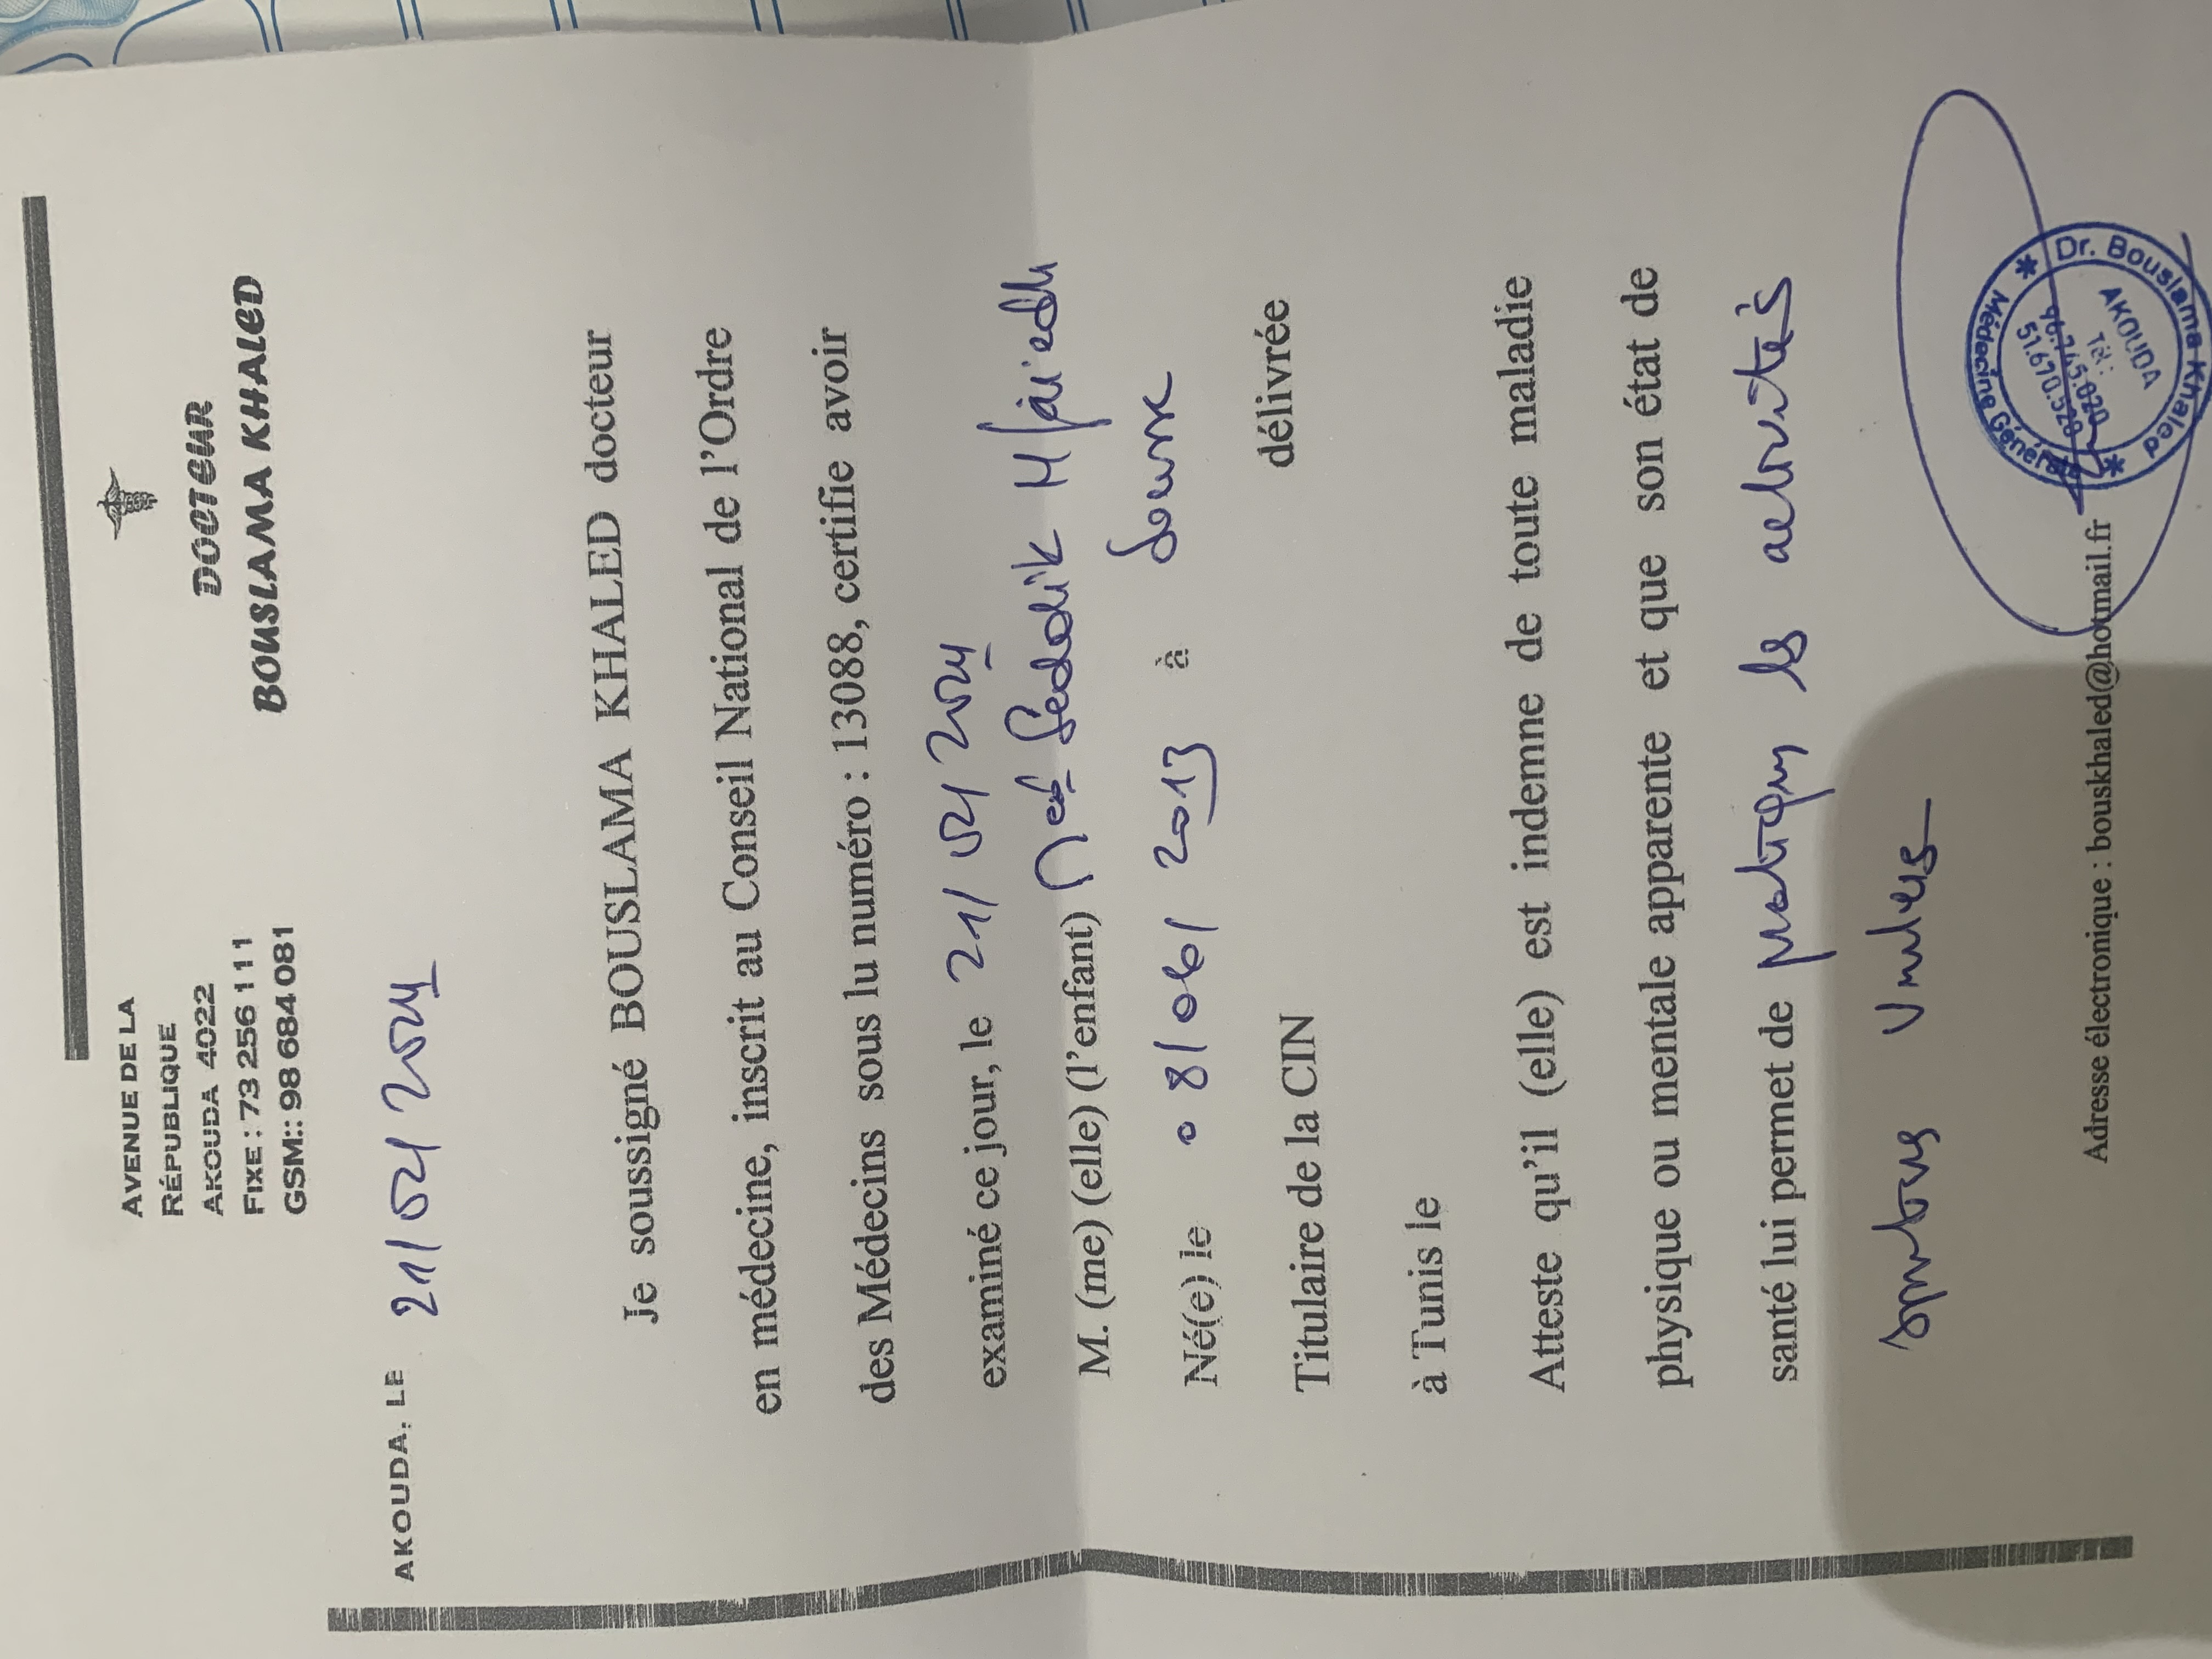 AVENUE DE LA
RÉPUBLIQUE
AKOUDA 4022
FIXE : 73 256 111
GSM:: 98 684 081
DOCTEUR
BOUSLAMA KHALED
AKOUDA, LE 21/
Je soussigné BOUSLAMA KHALED docteur
en médecine, inscrit au Conseil National de l'Ordre
des Médecins sous lu numéro : 13088, certifie avoir
examiné ce jour, le 21/
M. (me) (elle) (l'enfant) Med Seddik Mfaiedh
Né(e) le 08/06/2013 à Sousse
Titulaire de la CIN délivrée
à Tunis le
Atteste qu'il (elle) est indemne de toute maladie
physique ou mentale apparente et que son état de
santé lui permet de pratiquer les activités
sportives
Dr. Bouslama Khaled
* Médecine Générale *
AKOUDA
Tél :
96.745.020
51.670.528
Adresse électronique : bouskhaled@hotmail.fr